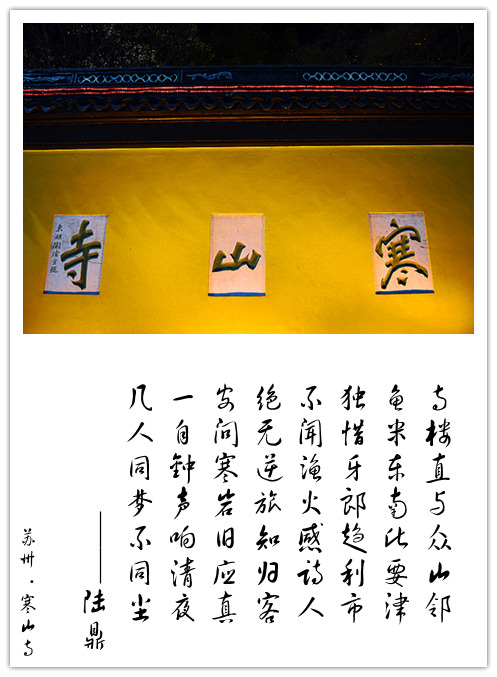 寒山寺
寺楼直与众山邻
鱼米东南此要津
独惜牙郎趋利市
不闻渔火感诗人
绝无逆旅知归客
安问寒岩旧应真
一自钟声响清夜
几人同梦不同尘
——陆鼎
苏州·寒山寺